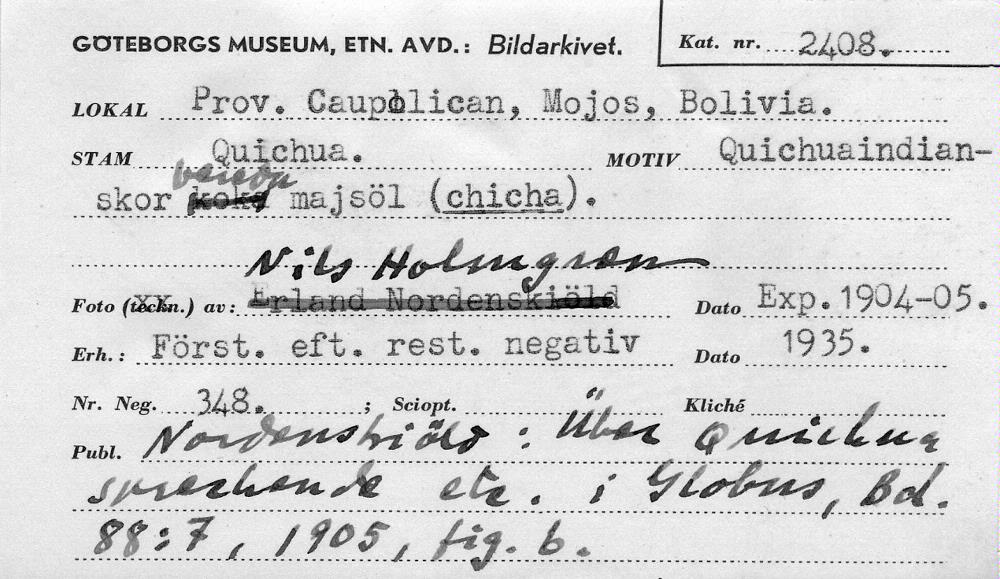 GÖTEBORGS MUSEUM, ETN. AVD.: Bildarkivet.
Kat. nr. 2408.
LOKAL Prov. Caupolican, Mojos, Bolivia.
STAM Quichua. MOTIV Quichuaindian-
bereda
skor koka majsöl (chicha).
Nils Holmgren
Foto (teckn.) av: Erland Nordenskiöld Dato Exp. 1904-05.
Erh.: Först. eft. rest. negativ Dato 1935.
Nr. Neg. 348. ; Sciopt. Kliché
Publ. Nordenskiöld: Über Quichua
sprechende etc. i Globus, Bd.
88:7, 1905, fig. 6.